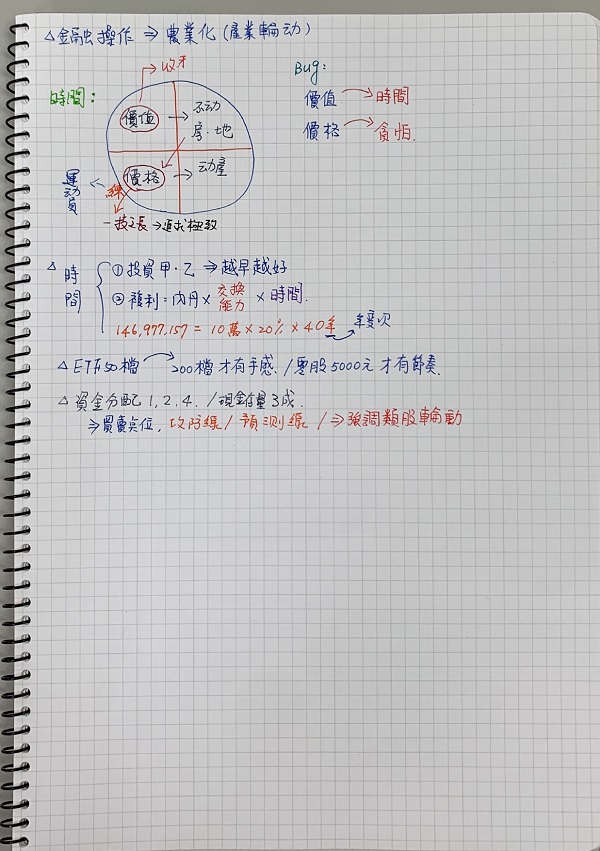 △金融操作 ⇒ 農業化(產業輪动)
時間:
→收才
價值 → 不动
房.地
價格 → 动產
運动員 ←
練
一技之長→追求極致
Bug:
價值 → 時間
價格 → 貪怕.
△時間 { ①投資甲.乙 ⇒越早越好
②複利:內丹×交換能力×時間.
146,977,157 = 10萬×20%×40年 → 年度次
△ETF50檔 → 200檔才有手感./零股5000元才有節奏.
△資金分配1,2,4./現金量3成.
⇒買賣点位,攻防線/預測線/⇒強調類股輪動